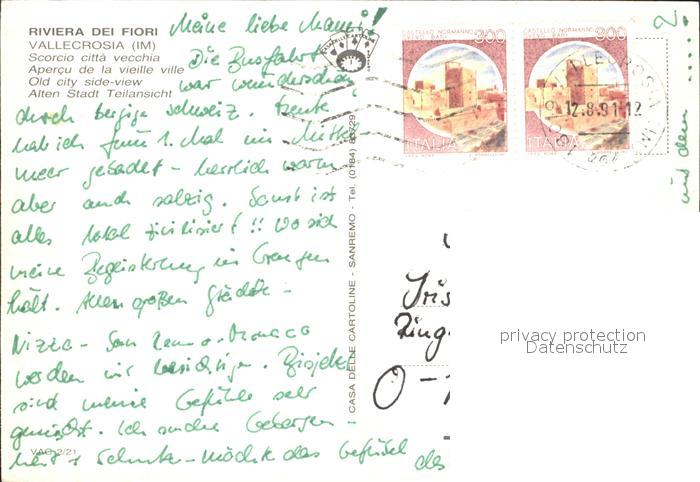 RIVIERA DEI FIORI
VALLECROSIA (IM)
Scorcio città vecchia
Aperçu de la vieille ville
Old city side-view
Alten Stadt Teilansicht
Meine liebe Mami!
Die Busfahrt
war wunderschön
durch bergige Schweiz. Heute
hab ich zum 1. Mal im Mittel-
meer gebadet - herrlich warm
aber auch salzig. Sonst ist
alles total zivilisiert!! Wo sich
meine Begeisterung in Grenzen
hält. Allen großen Städte -
Nizza - San Remo - Monaco
werden wir besichtigen. Bis jetzt
sind meine Gefühle sehr
gemischt. Ich suche Geborgen-
heit + Schutz - möchte das Gefühl
des
VAC 2/21
CASA DELLE CARTOLINE - SANREMO - Tel. (0184)
CASTELLO NORMANNO
300
ITALIA
CASTELLO NORMANNO
300
ITALIA
VALLECROSIA
12.8.91-12
2.
und dem ....
Iris
Ring
O-
privacy protection
Datenschutz